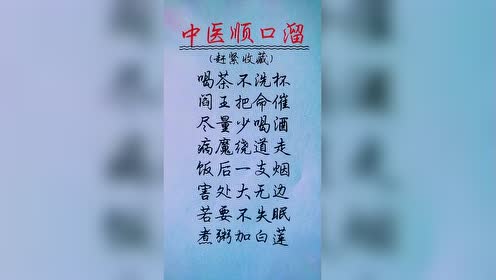 中医顺口溜
(赶紧收藏)
喝茶不洗杯
阎王把命催
尽量少喝酒
病魔绕道走
饭后一支烟
害处大无边
若要不失眠
煮粥加白莲